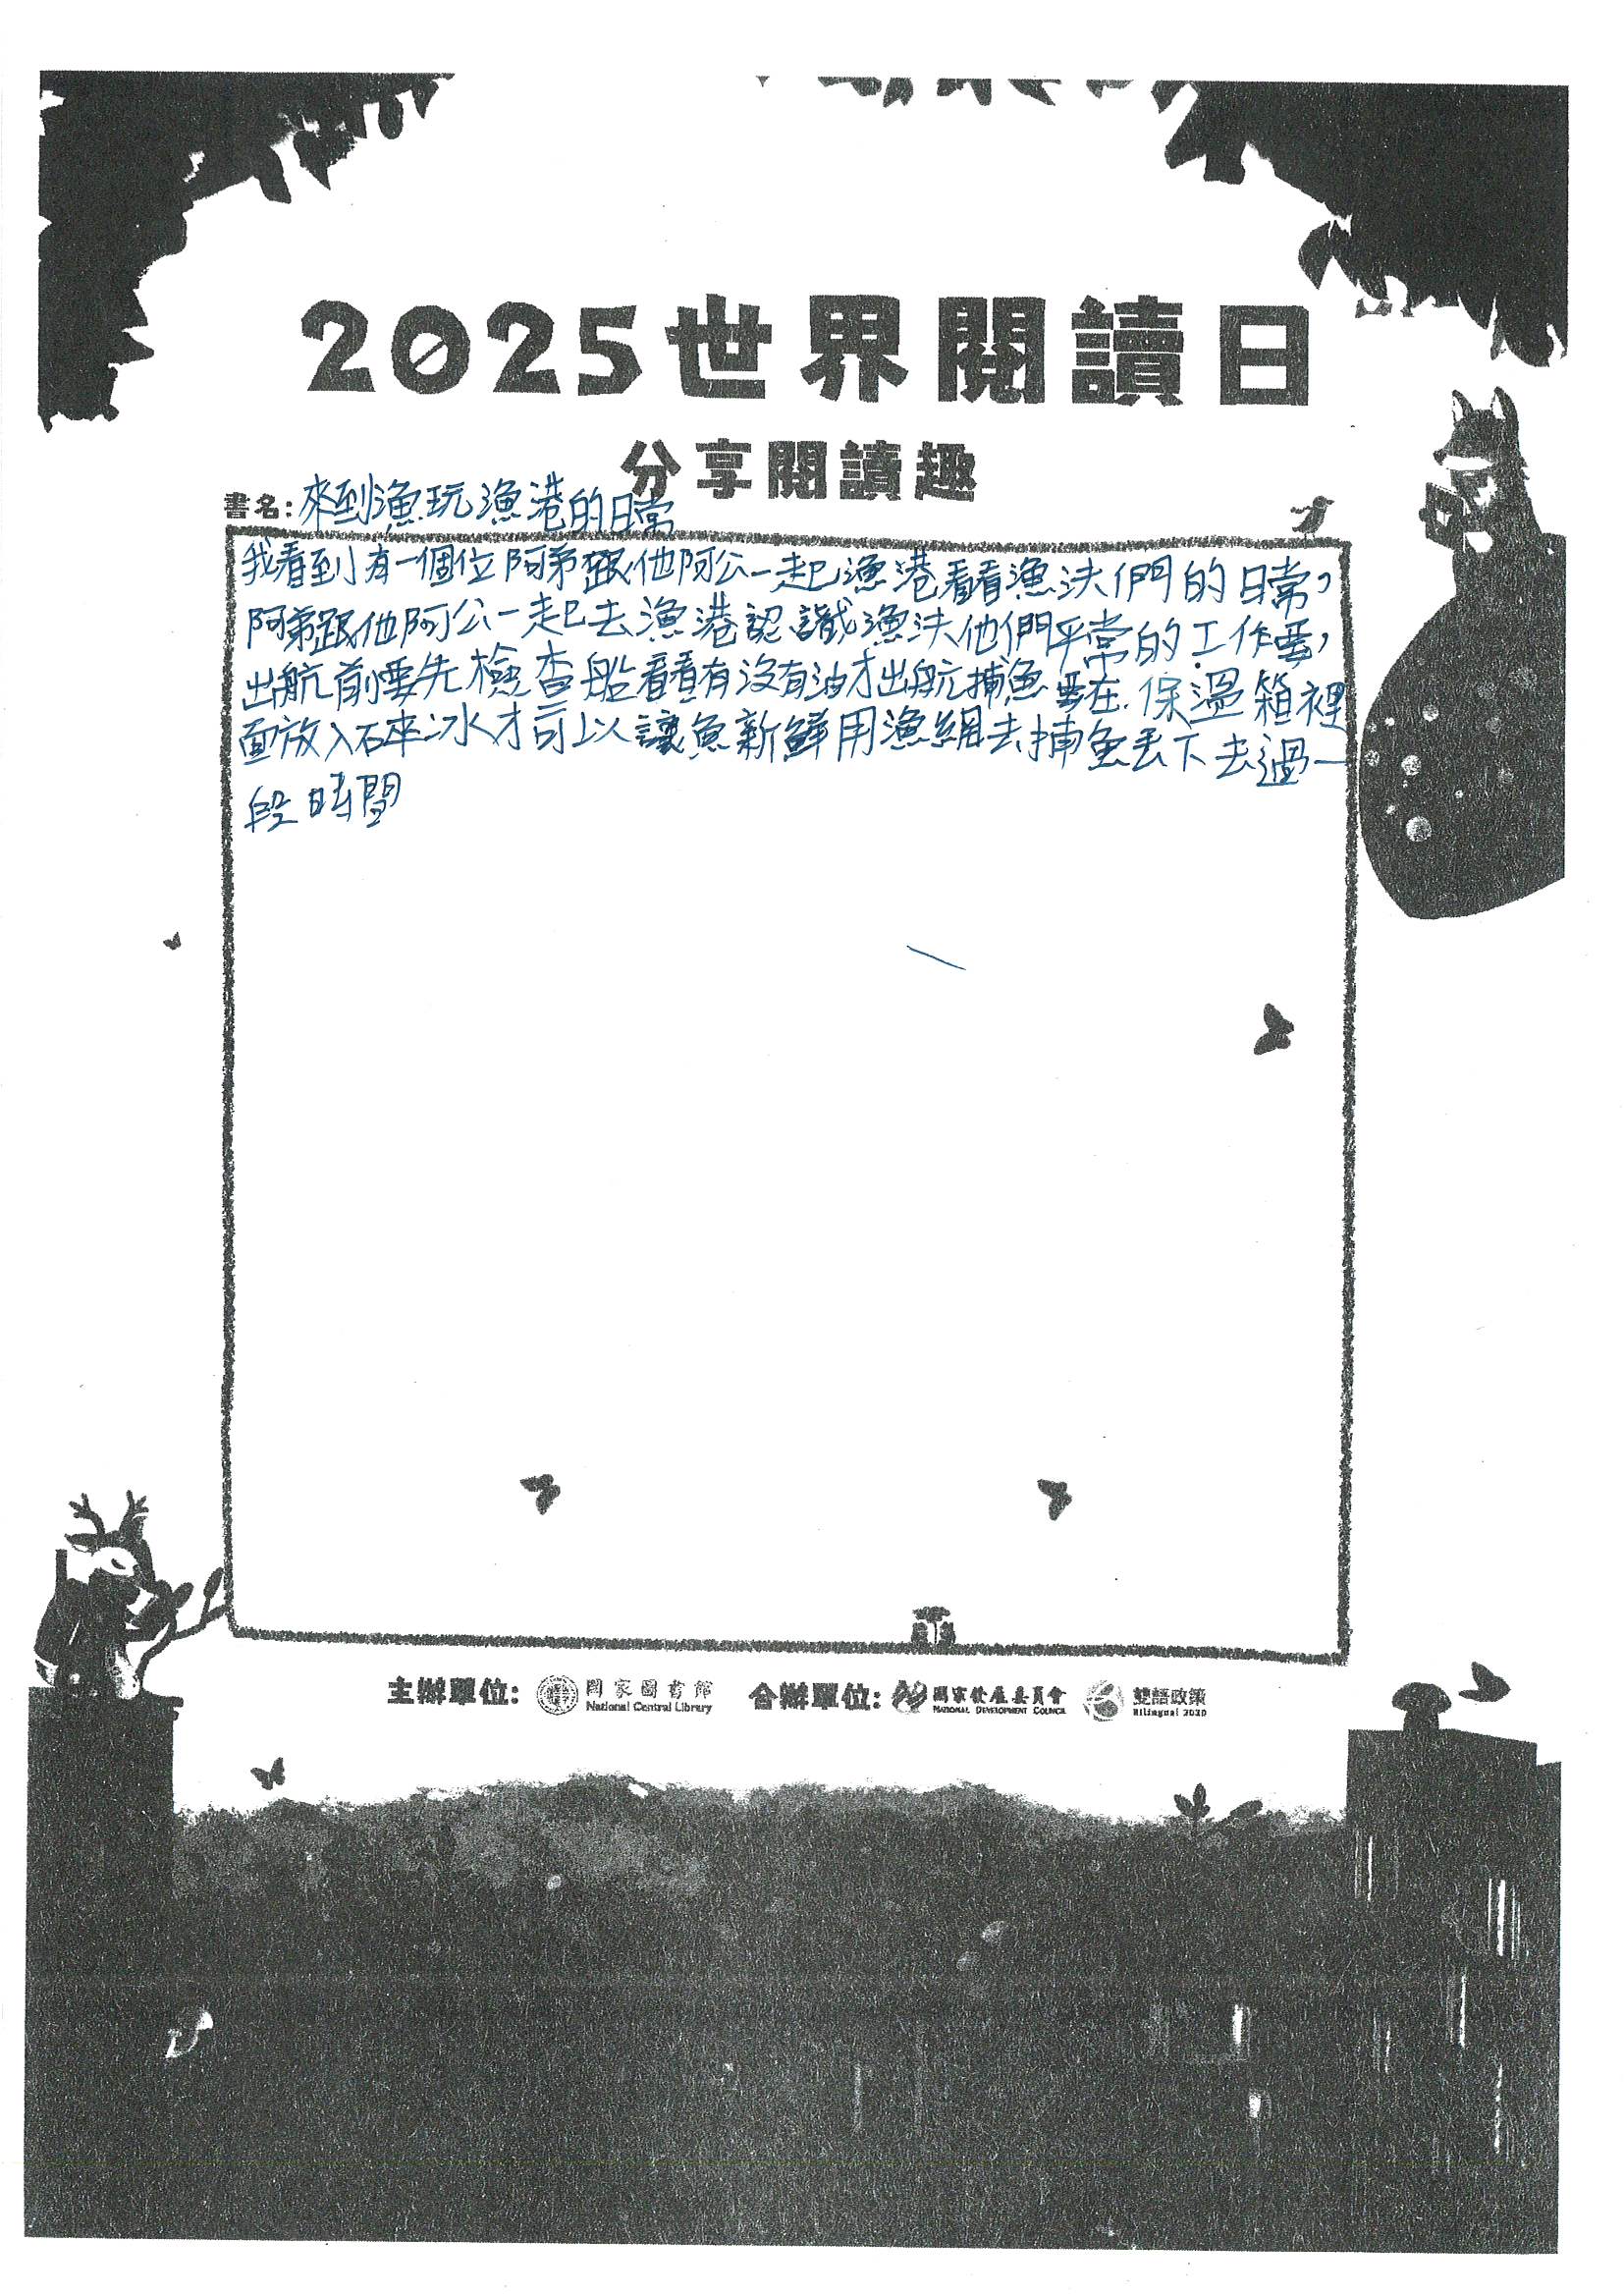 2025世界閱讀日
分享閱讀趣
書名:來到漁玩漁港的日常
我看到有一個位阿弟跟他阿公一起漁港看看漁夫們的日常,
阿弟跟他阿公一起去漁港認識漁夫他們平常的工作要,
出航前要先檢查船看看有沒有油才出航捕魚要在保溫箱裡
面放入碎冰才可以讓魚新鮮用漁網去捕魚丟下去過一
段時間
主辦單位: 國家圖書館 合辦單位: 國家發展委員會 雙語政策
National Central Library NATIONAL DEVELOPMENT COUNCIL Bilingual 2030